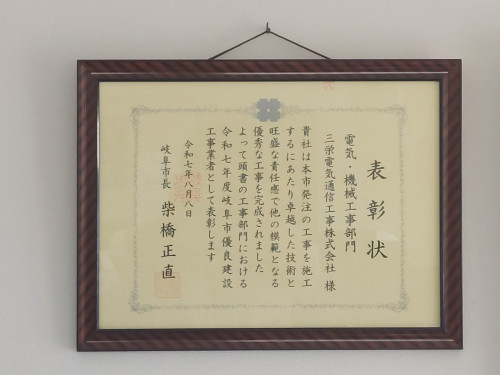 表彰状
電気・機械工事部門
三栄電気通信工事株式会社 様
貴社は本市発注の工事を施工
するにあたり卓越した技術と
旺盛な責任感で他の模範となる
優秀な工事を完成されました
よって頭書の工事部門における
令和七年度岐阜市優良建設
工事業者として表彰します
令和七年八月八日
岐阜市長 柴橋正直